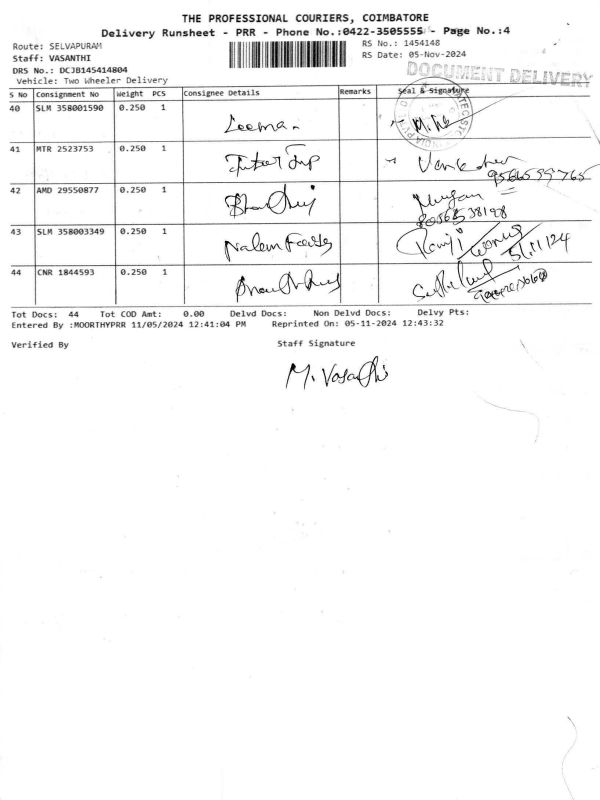 THE PROFESSIONAL COURIERS, COIMBATORE
Delivery Runsheet - PRR - Phone No.:0422-3505555 - Page No.:4
Route: SELVAPURAM
RS No.: 1454148
Staff: VASANTHI
RS Date: 05-Nov-2024
DRS No.: DCJB145414804
DOCUMENT DELIVERY
Vehicle: Two Wheeler Delivery
S No Consignment No Weight PCS Consignee Details Remarks Seal & Signature
40 SLM 358001590 0.250 1 Leema
41 MTR 2523753 0.250 1
42 AMD 29550877 0.250 1 Murugan
43 SLM 358003349 0.250 1 Ramji 5/11/24
44 CNR 1844593 0.250 1
Tot Docs: 44 Tot COD Amt: 0.00 Delvd Docs: Non Delvd Docs: Delvy Pts:
Entered By :MOORTHYPRR 11/05/2024 12:41:04 PM Reprinted On: 05-11-2024 12:43:32
Verified By Staff Signature
M. Vasanthi